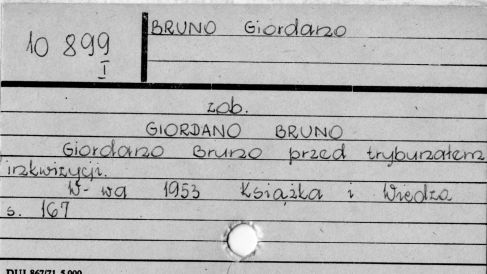 BRUNO Giordano
10 899
I
zob.
GIORDANO BRUNO
Giordano Bruno przed trybunałem
inkwizycji.
W-wa 1953 Książka i Wiedza
s. 167
DUJ 867/71 5.000